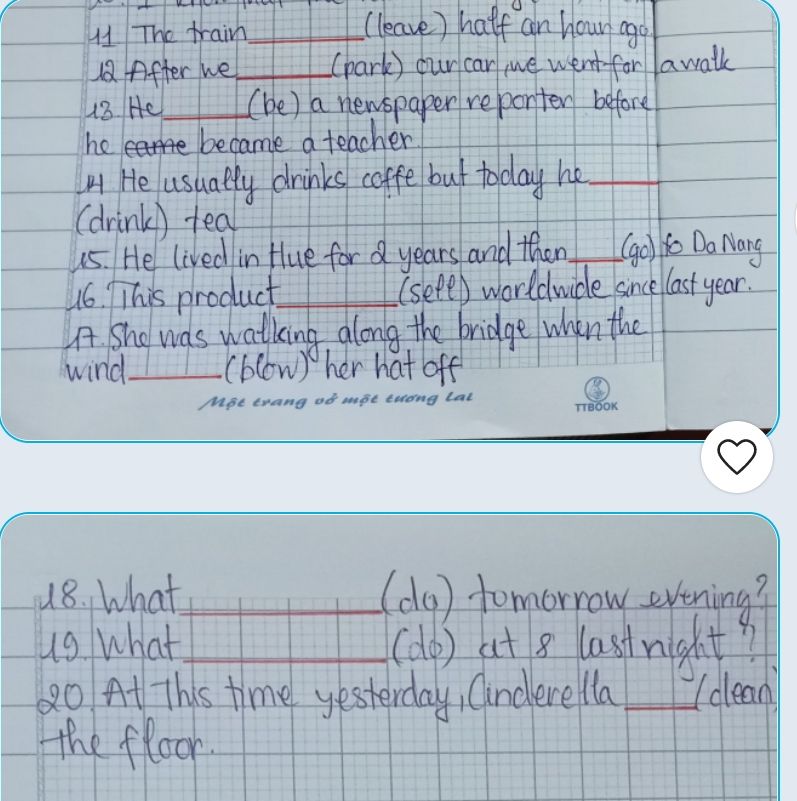 11 The train ________ (leave) half an hour ago
12 After we ________ (park) our car, we went for a walk
13. He ______ (be) a newspaper reporter before
he came became a teacher.
14 He usually drinks coffe but today he ______
(drink) tea
15. He lived in Hue for 2 years and then ____ (go) to Da Nang
16. This product ________ (sell) worldwide since last year.
17. She was walking along the bridge when the
wind ______ (blow) her hat off
Một trang vở một tương lai
TTBOOK
18. What ____________ (do) tomorrow evening?
19. What ____________ (do) at 8 last night?
20. At this time yesterday, Cinderella ____ (clean)
the floor.